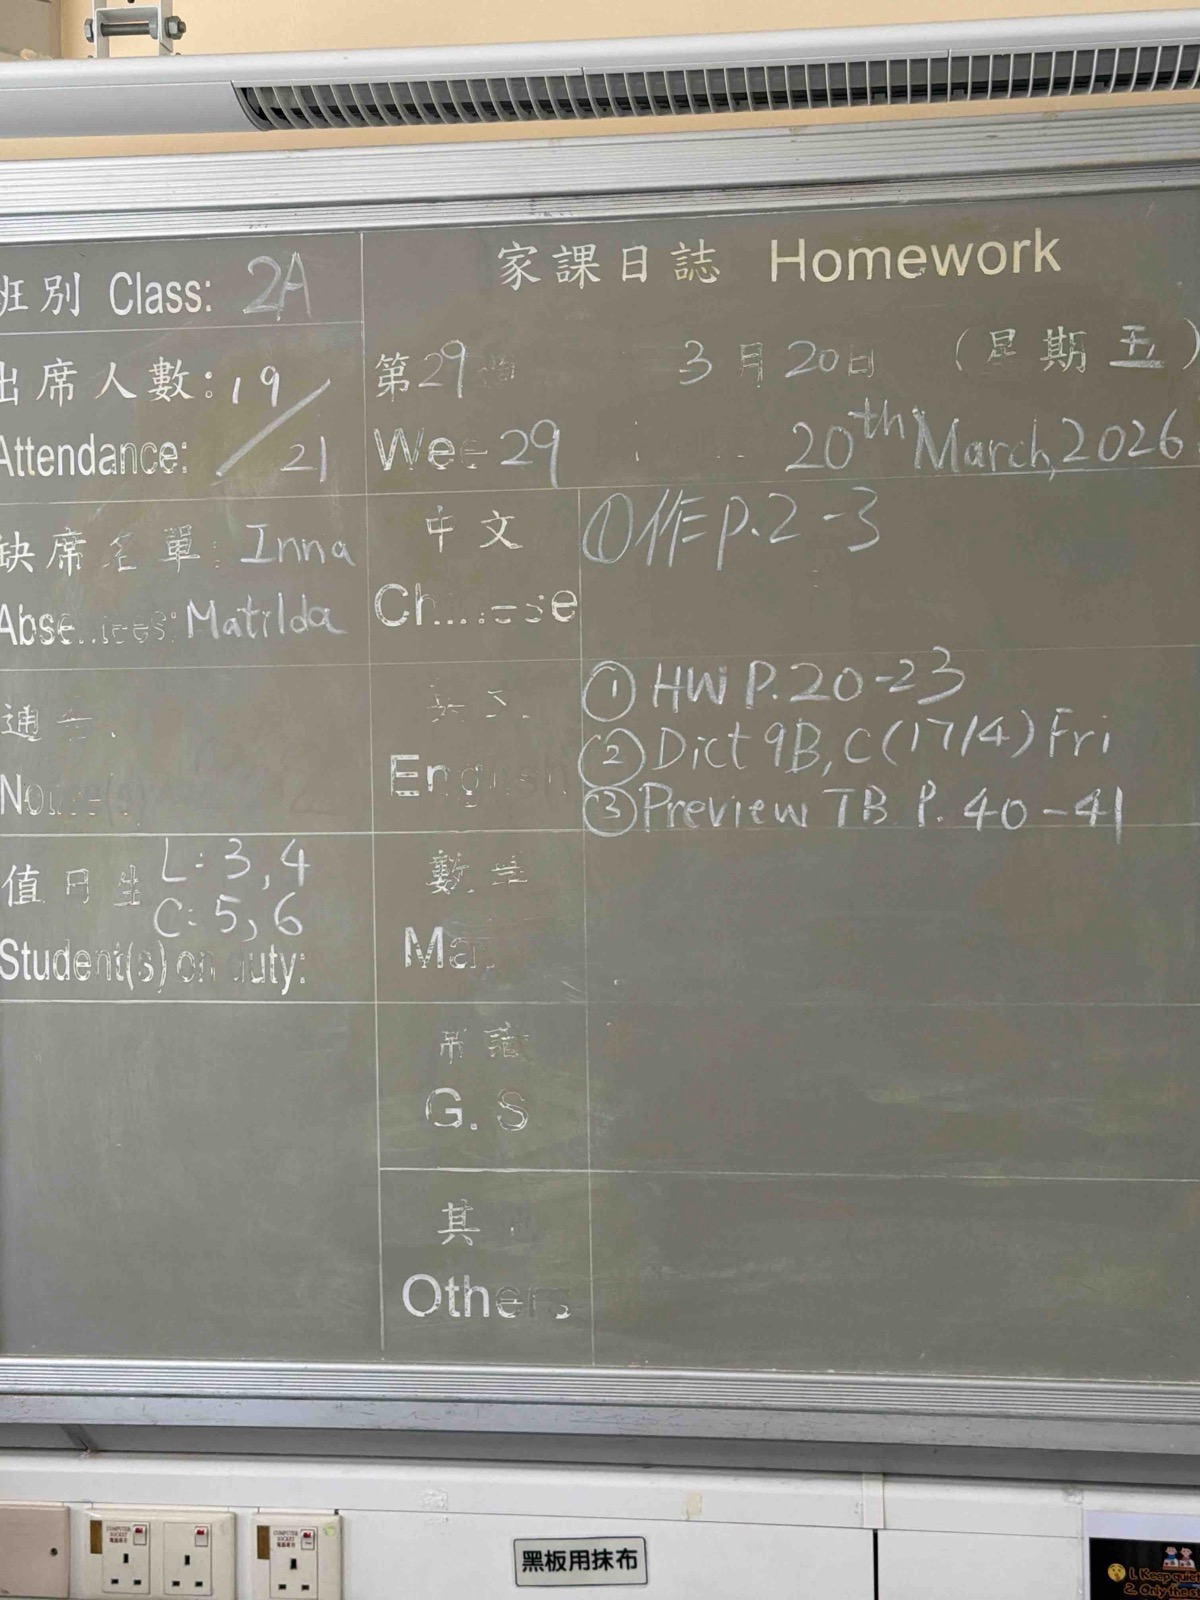 班別 Class: 2A
家課日誌 Homework
出席人數: 19/21
Attendance:
第29週 3月20日 (星期五)
Week 29 20th March, 2026
缺席名單: Inna
Absentees: Matilda
中文
Chinese
①作P.2-3
通告
英文
English
①HW P.20-23
②Dict 9B, C (17/4) Fri
③Preview TB P. 40-41
值日生 L: 3, 4
C: 5, 6
Student(s) on duty:
數學
常識
G. S
其
Others
黑板用抹布
COMPUTER SOCKET
COMPUTER SOCKET
1. Keep quiet
2. Only the